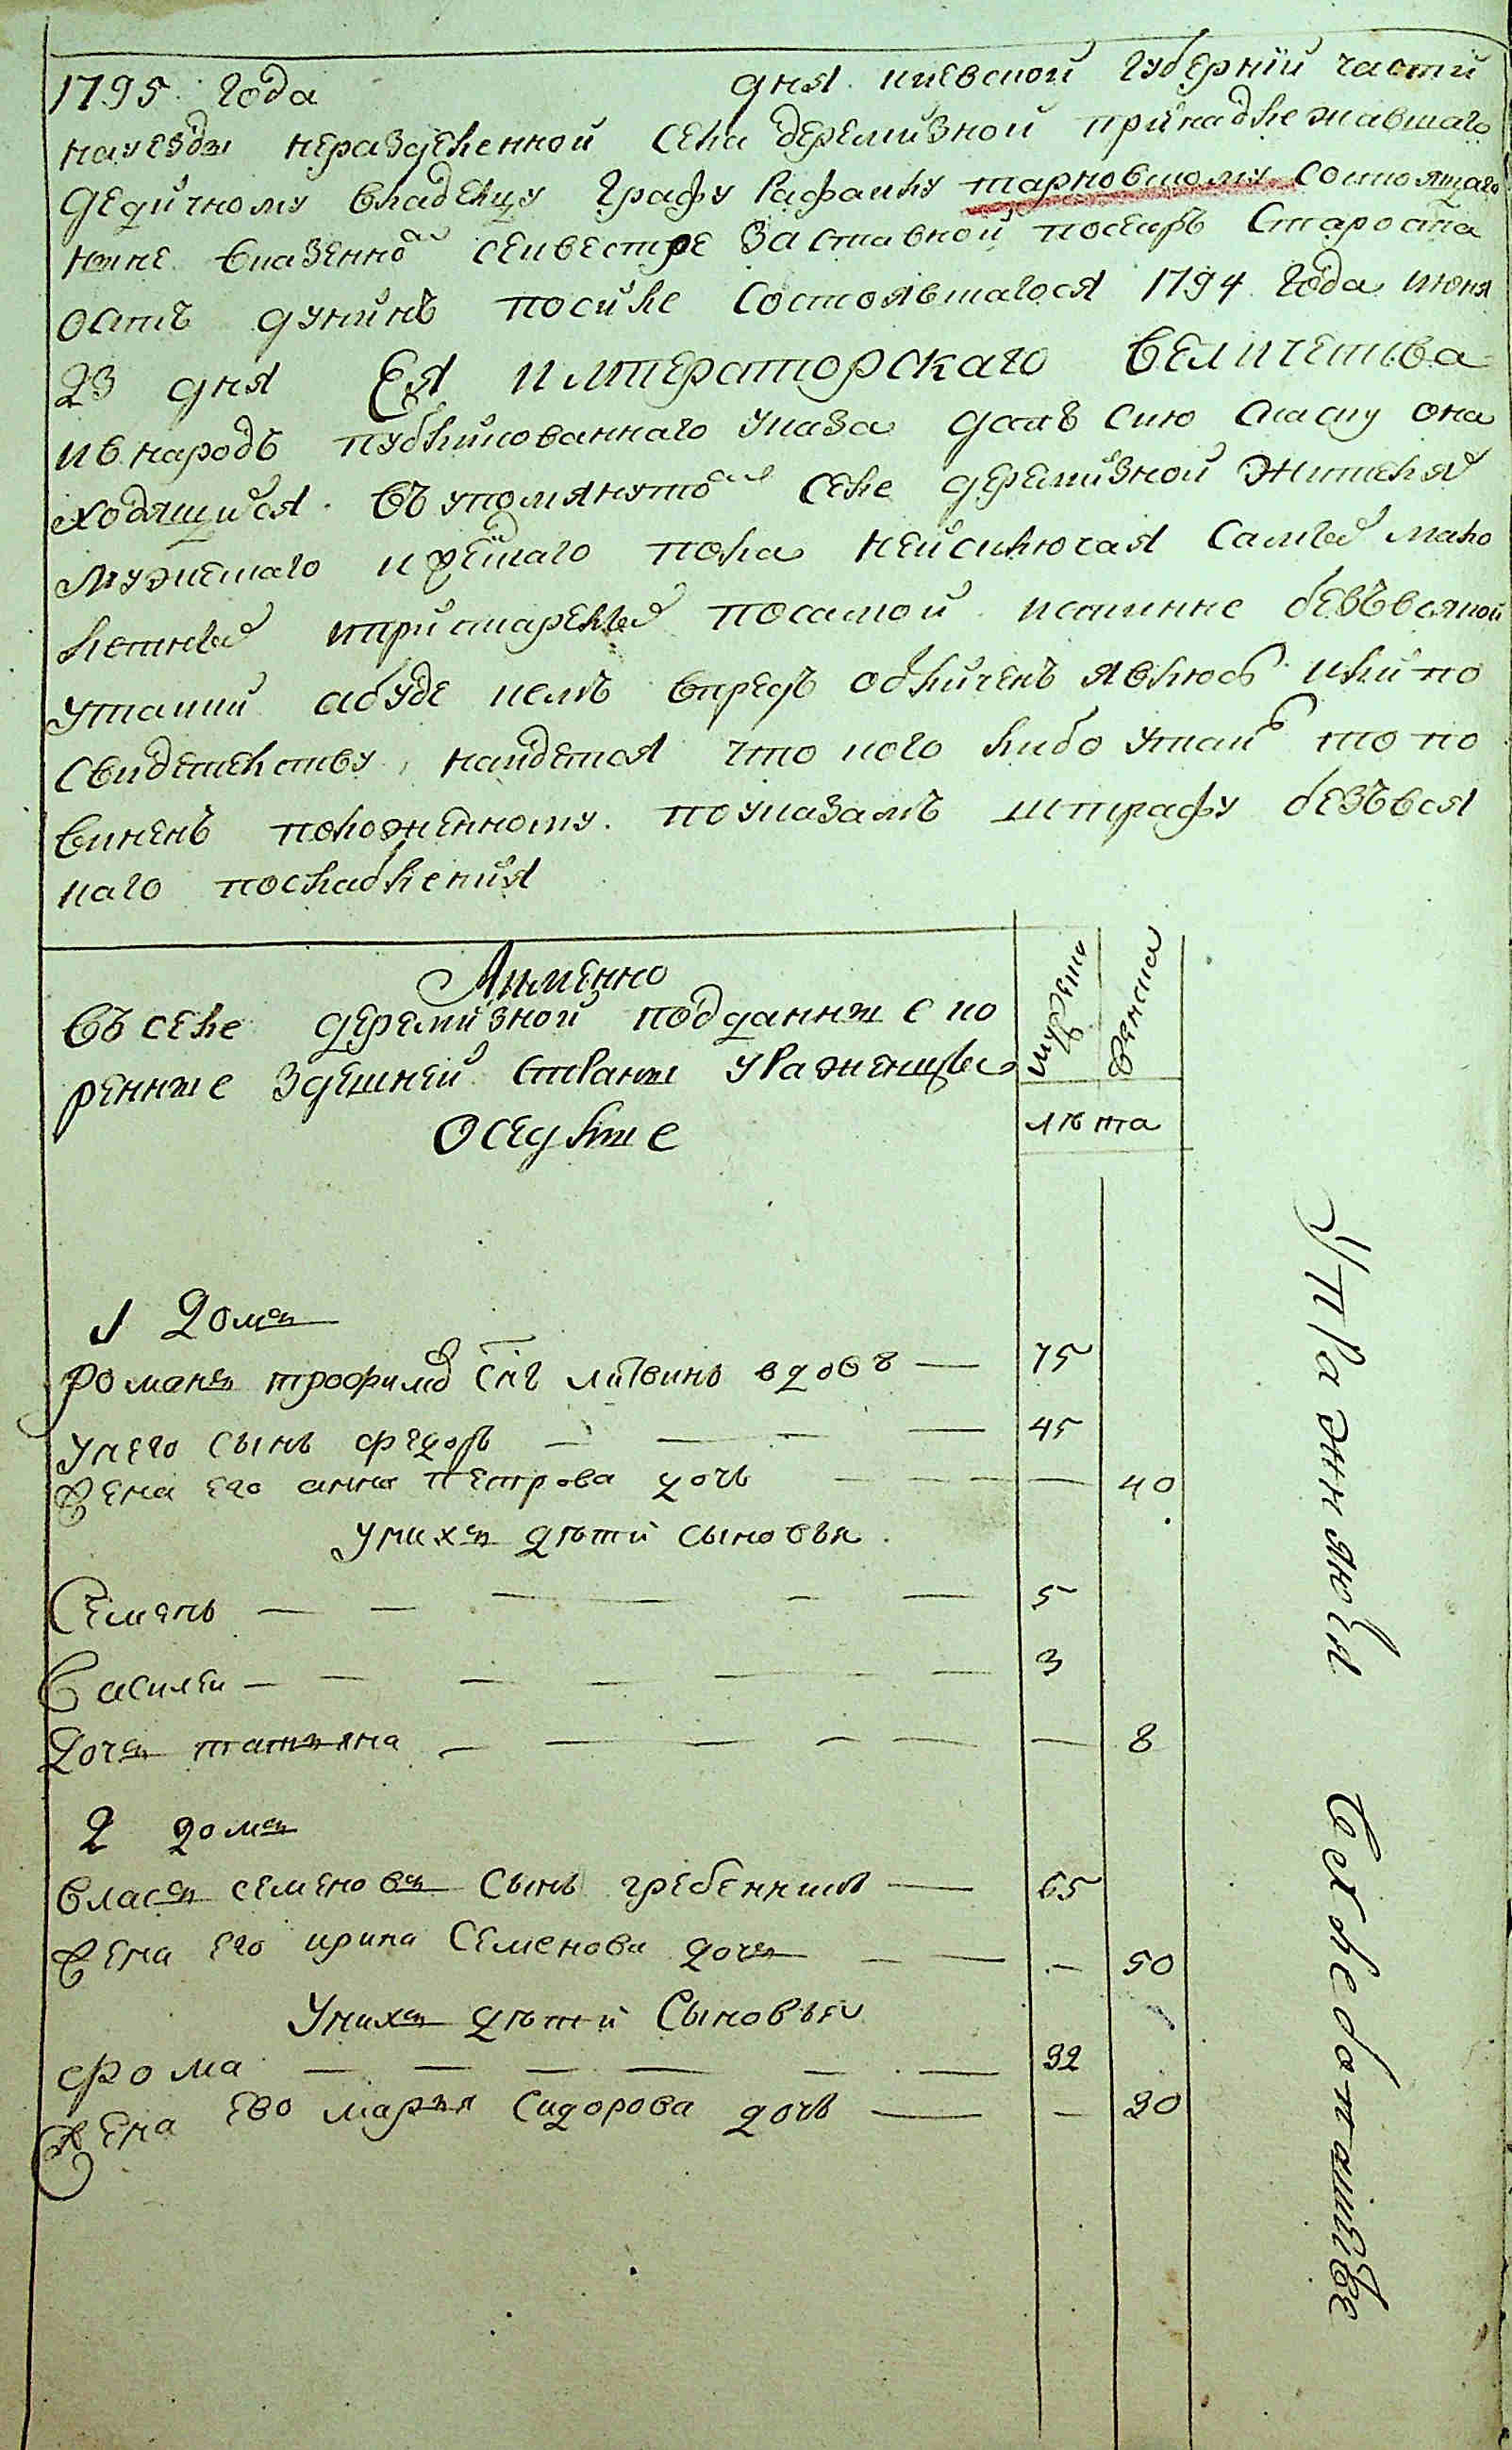 1795 года дня киевской губернїи части
науезды неразделенной села деремизной принадлежавшаго
дедичному владелцу графу Рафаилу тарновскому состоящаго
ныне вказенно секвестре заставной посесъ староста
остъ дунинъ посиле состоявшагося 1794 года июня
23 дня Ея императорскаго величества
ивнародъ публикованнаго указа далъ сию скаску она
ходящихся въупомянутой селе деремизной жителях
мужескаго иженскаго пола неисключая самых мало
летных ипристарелых посамой истинне безвсякой
утайки абуде чемъ впредь обличенъ явлюсь или по
свидетелству найдется что кого либо утаилъ то по
виненъ положенному поуказамъ штрафу безъвся
каго послабления
Аименно
мужеска
женска
въселе деремизной подданные ко
ренные здешней страны уроженцы
оседлые
лѣта
1 домъ
романъ трофимов снъ литвинъ вдовъ — 75
унего сынъ федоръ — — — — 45
жена его анна петрова дочь — — — — 40
унихъ дѣтй сыновья
Семенъ — — — — — — 5
Василеи — — — — — — 3
Дочь татьяна — — — — — — 8
2 домъ
власъ семеновъ сынъ гребенникъ — 65
жена его ирина Семенова дочь — — — 50
Унихъ дѣтй Сыновья
фома — — — — — — 32
жена ево марья сидорова дочь — — 30
Упражняются
вхлебопашестве